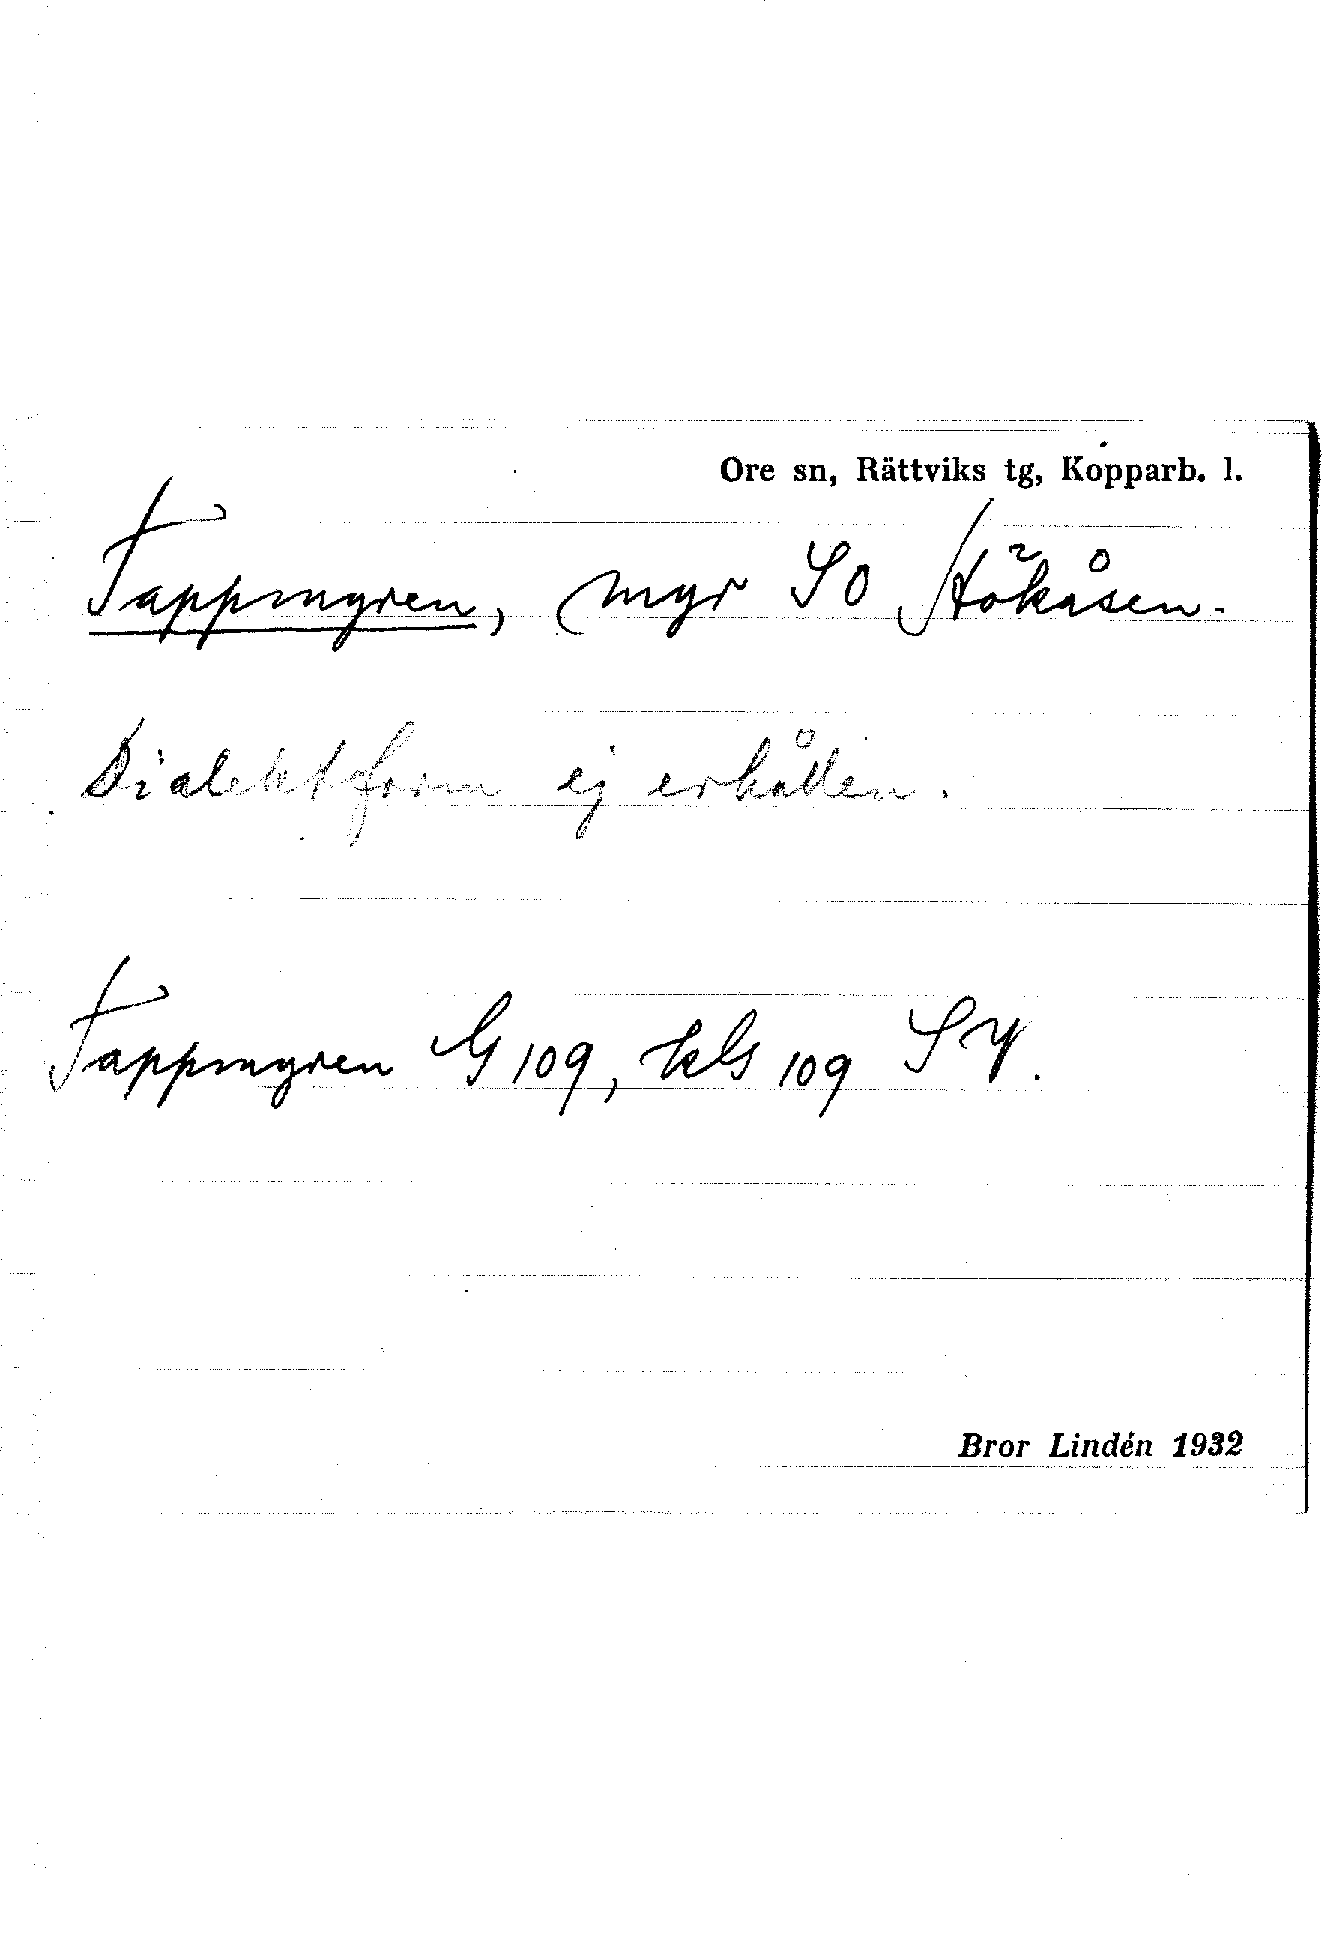 Ore sn, Rättviks tg, Kopparb. l.
Tappmyren, myr SO Hökåsen.
Dialektform ej erhållen.
Tappmyren G 109, kls 109 SV.
Bror Lindén 1932